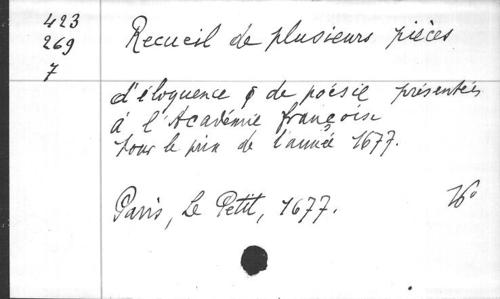 423
269
7
Recueil de plusieurs pièces
d'éloquence & de poésie présentées
à l'Académie françoise
pour le prix de l'année 1677.
Paris, Le Petit, 1677.
16°